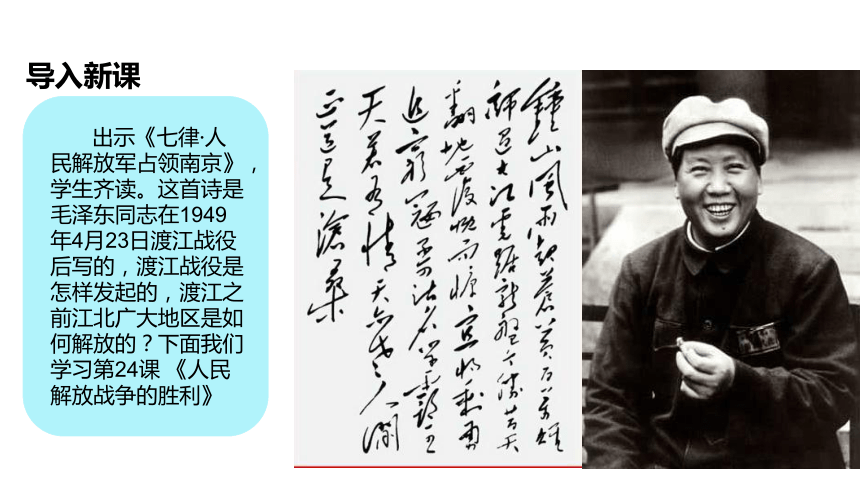 导入新课
出示《七律·人
民解放军占领南京》，
学生齐读。这首诗是
毛泽东同志在1949
年4月23日渡江战役
后写的，渡江战役是
怎样发起的，渡江之
前江北广大地区是如
何解放的？下面我们
学习第24课 《人民
解放战争的胜利》
鐘山風雨起蒼黃百萬雄
師過大江虎踞龍盤今勝昔天
翻地覆慨而慷宜將剩勇
追窮寇不可沽名學霸王
天若有情天亦老人間
正道是滄桑